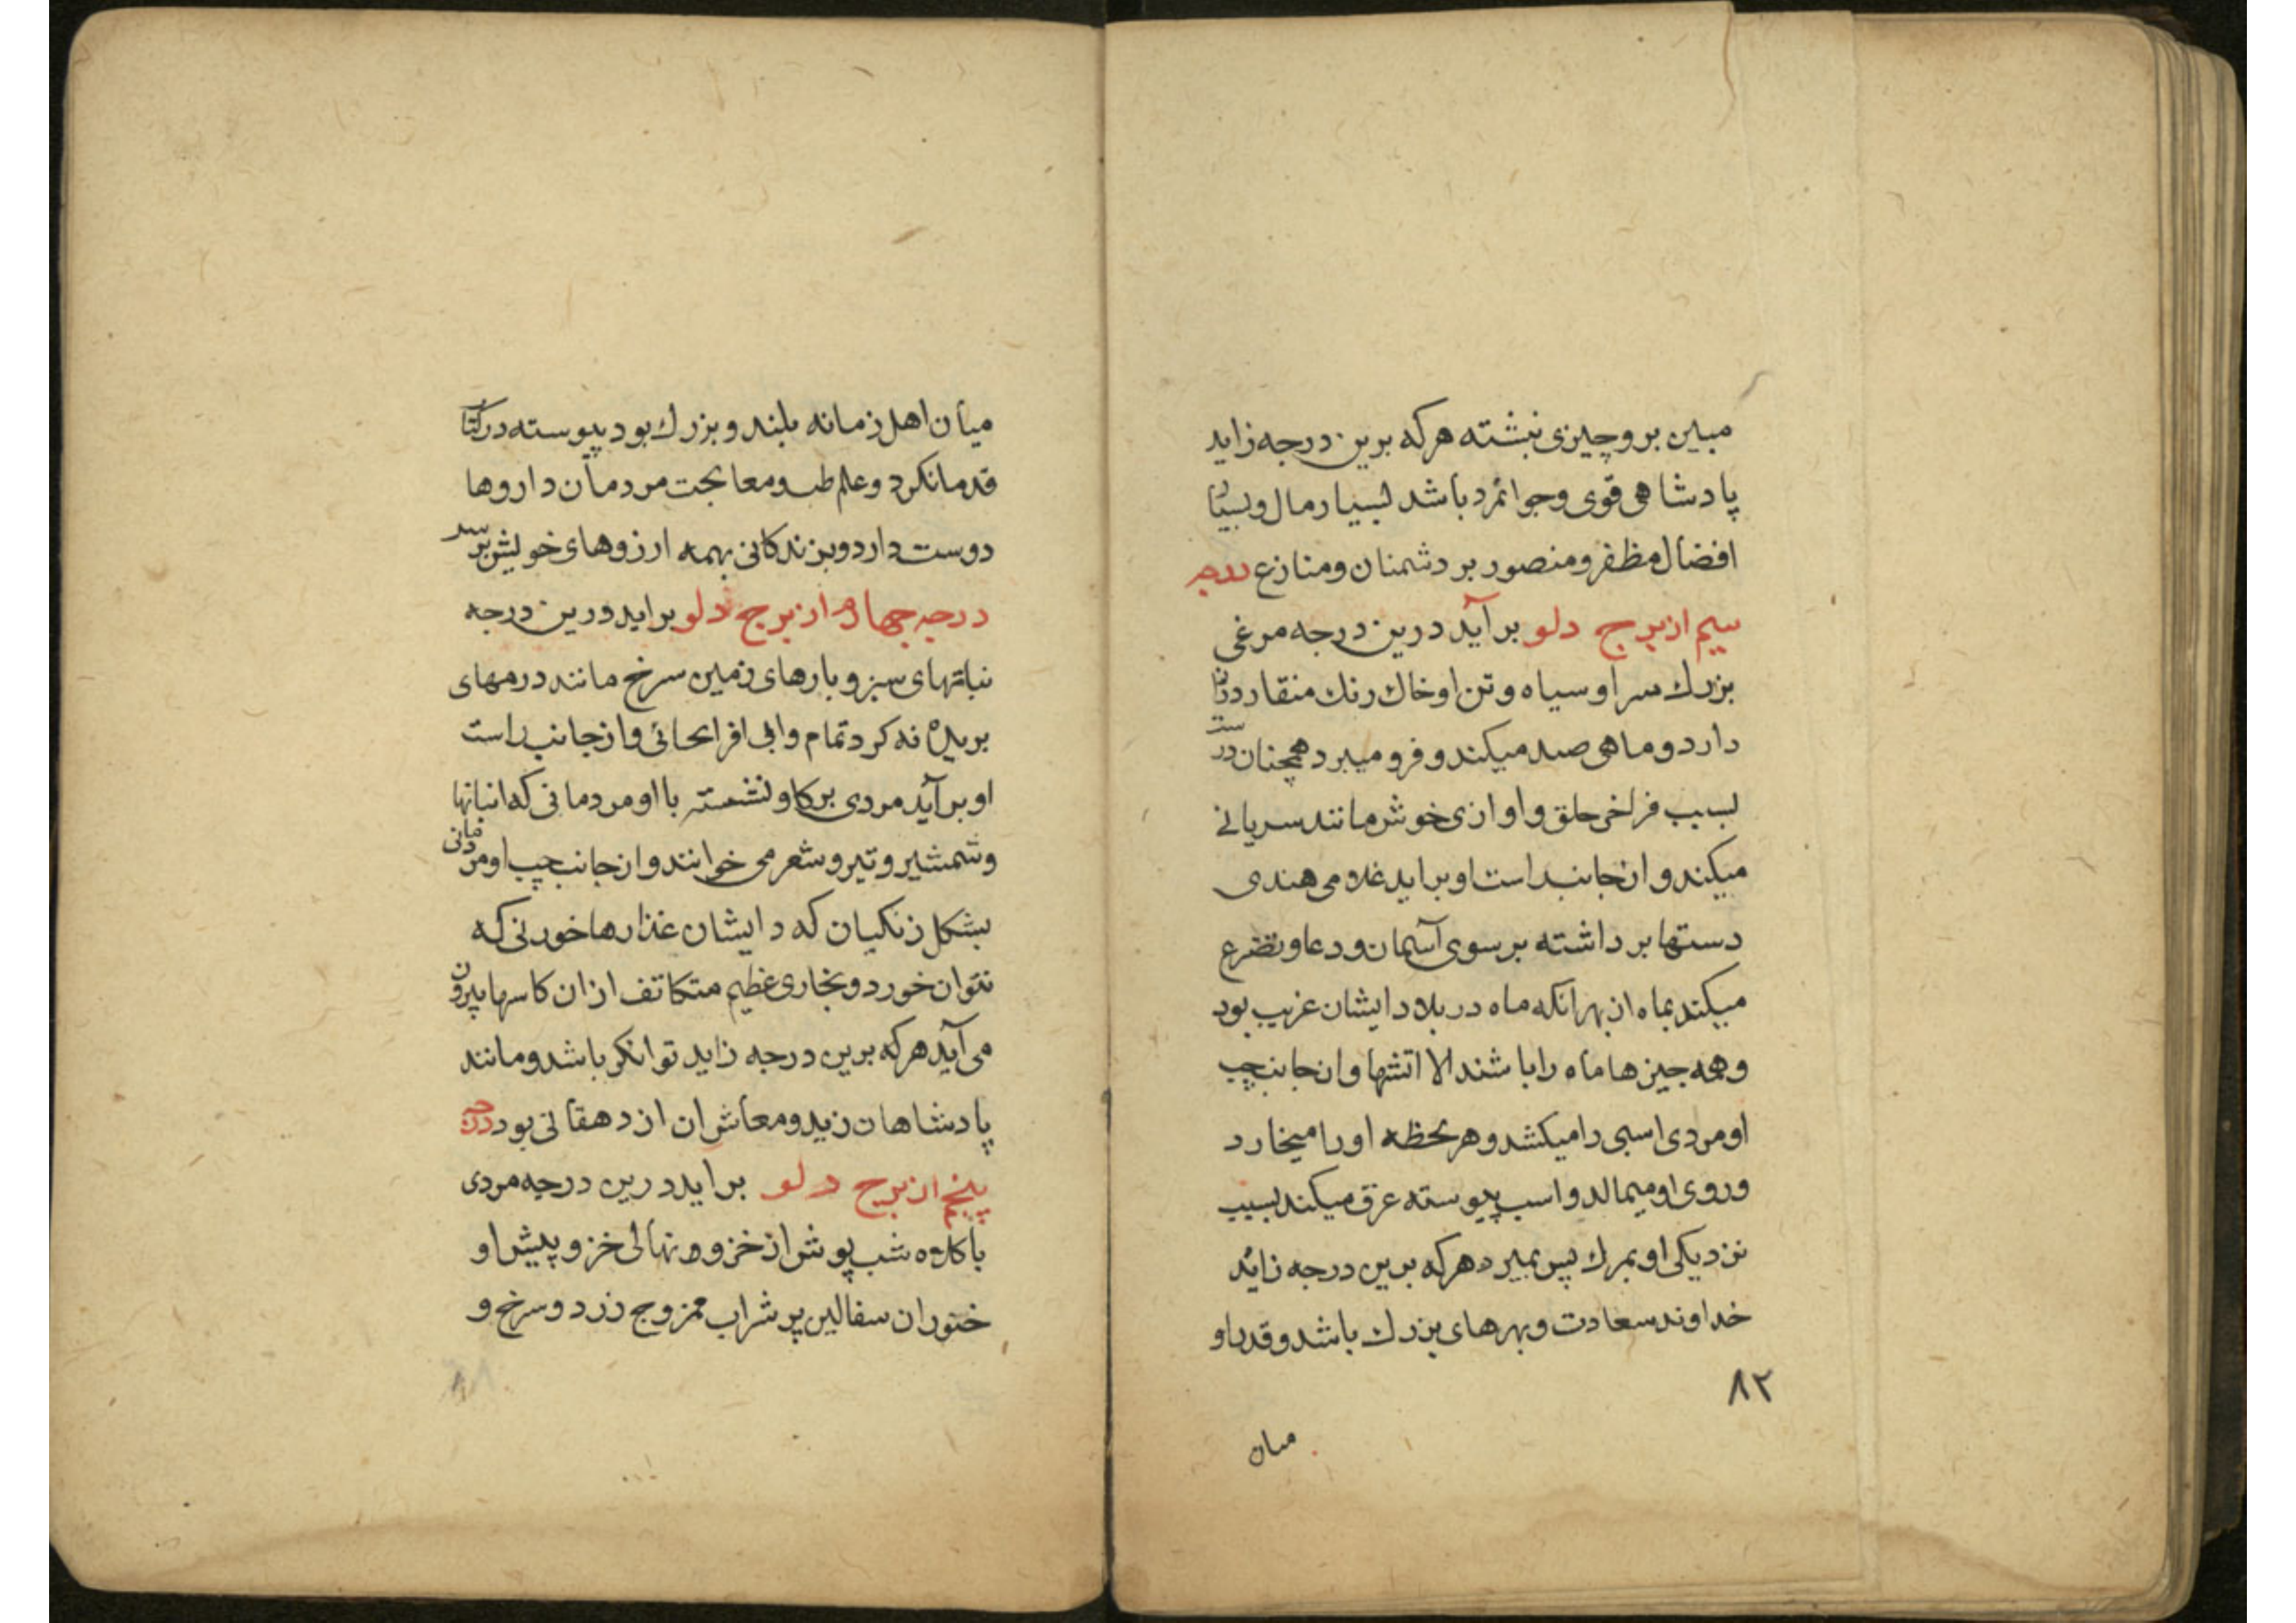 مبین بروچیزی نبشته هرکه برین درجه زاید
پادشاهی قوی وجوانمرد باشد بسیار مال وبسیار
افضال مظفر ومنصور بر دشمنان ومنازع درجه
سیم از برج دلو برآید درین درجه مرغی
بزرك سر او سیاه وتن او خاك رنك منقار دراز
دارد وماهی صید میکند وفرو میبرد همچنان درست
بسبب فراخی حلق واوازی خوش مانند سریانی
میکند واز جانب راست او براید غلامی هندی
دستها بر داشته بر سوی آسمان ودعا وتضرع
میکند بماه از بهر انکه ماه در بلاد ایشان غریب بود
وهمه جیزها ماه را باشند الا اتشها واز جانب چپ
او مردی اسبی را میکشد وهر لحظه اورا میخارد
وروی او میمالد واسب پیوسته عرق میکند بسبب
نزدیکی او بمرك پس بمیرد هرکه برین درجه زاید
خداوند سعادت وبهرهای بزرك باشد وقدر او
۸۲
میان
میان اهل زمانه بلند وبزرك بود پیوسته در کتا
قدما نکرد وعلم طب ومعالجت مردمان داروها
دوست دارد وبزندکانی بهمه ارزوهای خویش برسد
درجه چهارم از برج دلو براید درین درجه
نباتهای سبز وبارهای زمین سرخ مانند درمهای
بریده نه کرد تمام وابی افراسحائی واز جانب راست
او برآید مردی بر کاو نشسته با او مردمانی که انبانها
وشمشیر وتیر وشعر می خوانند واز جانب چپ او مردمانی
بشکل زنکیان که دایشان غذارها خورنی که
نتوان خورد وبخاری عظیم متکاتف ازان کاسها بیرون
می آید هرکه برین درجه زاید توانکر باشد ومانند
پادشاهان زید ومعاش ان از دهقانی بود درجه
پنجم از برج دلو براید درین درجه مردی
با کلاه شب پوش از خز وبر نهالی خز وپیش او
خنوران سفالین پر شراب ممزوج زرد وسرخ و